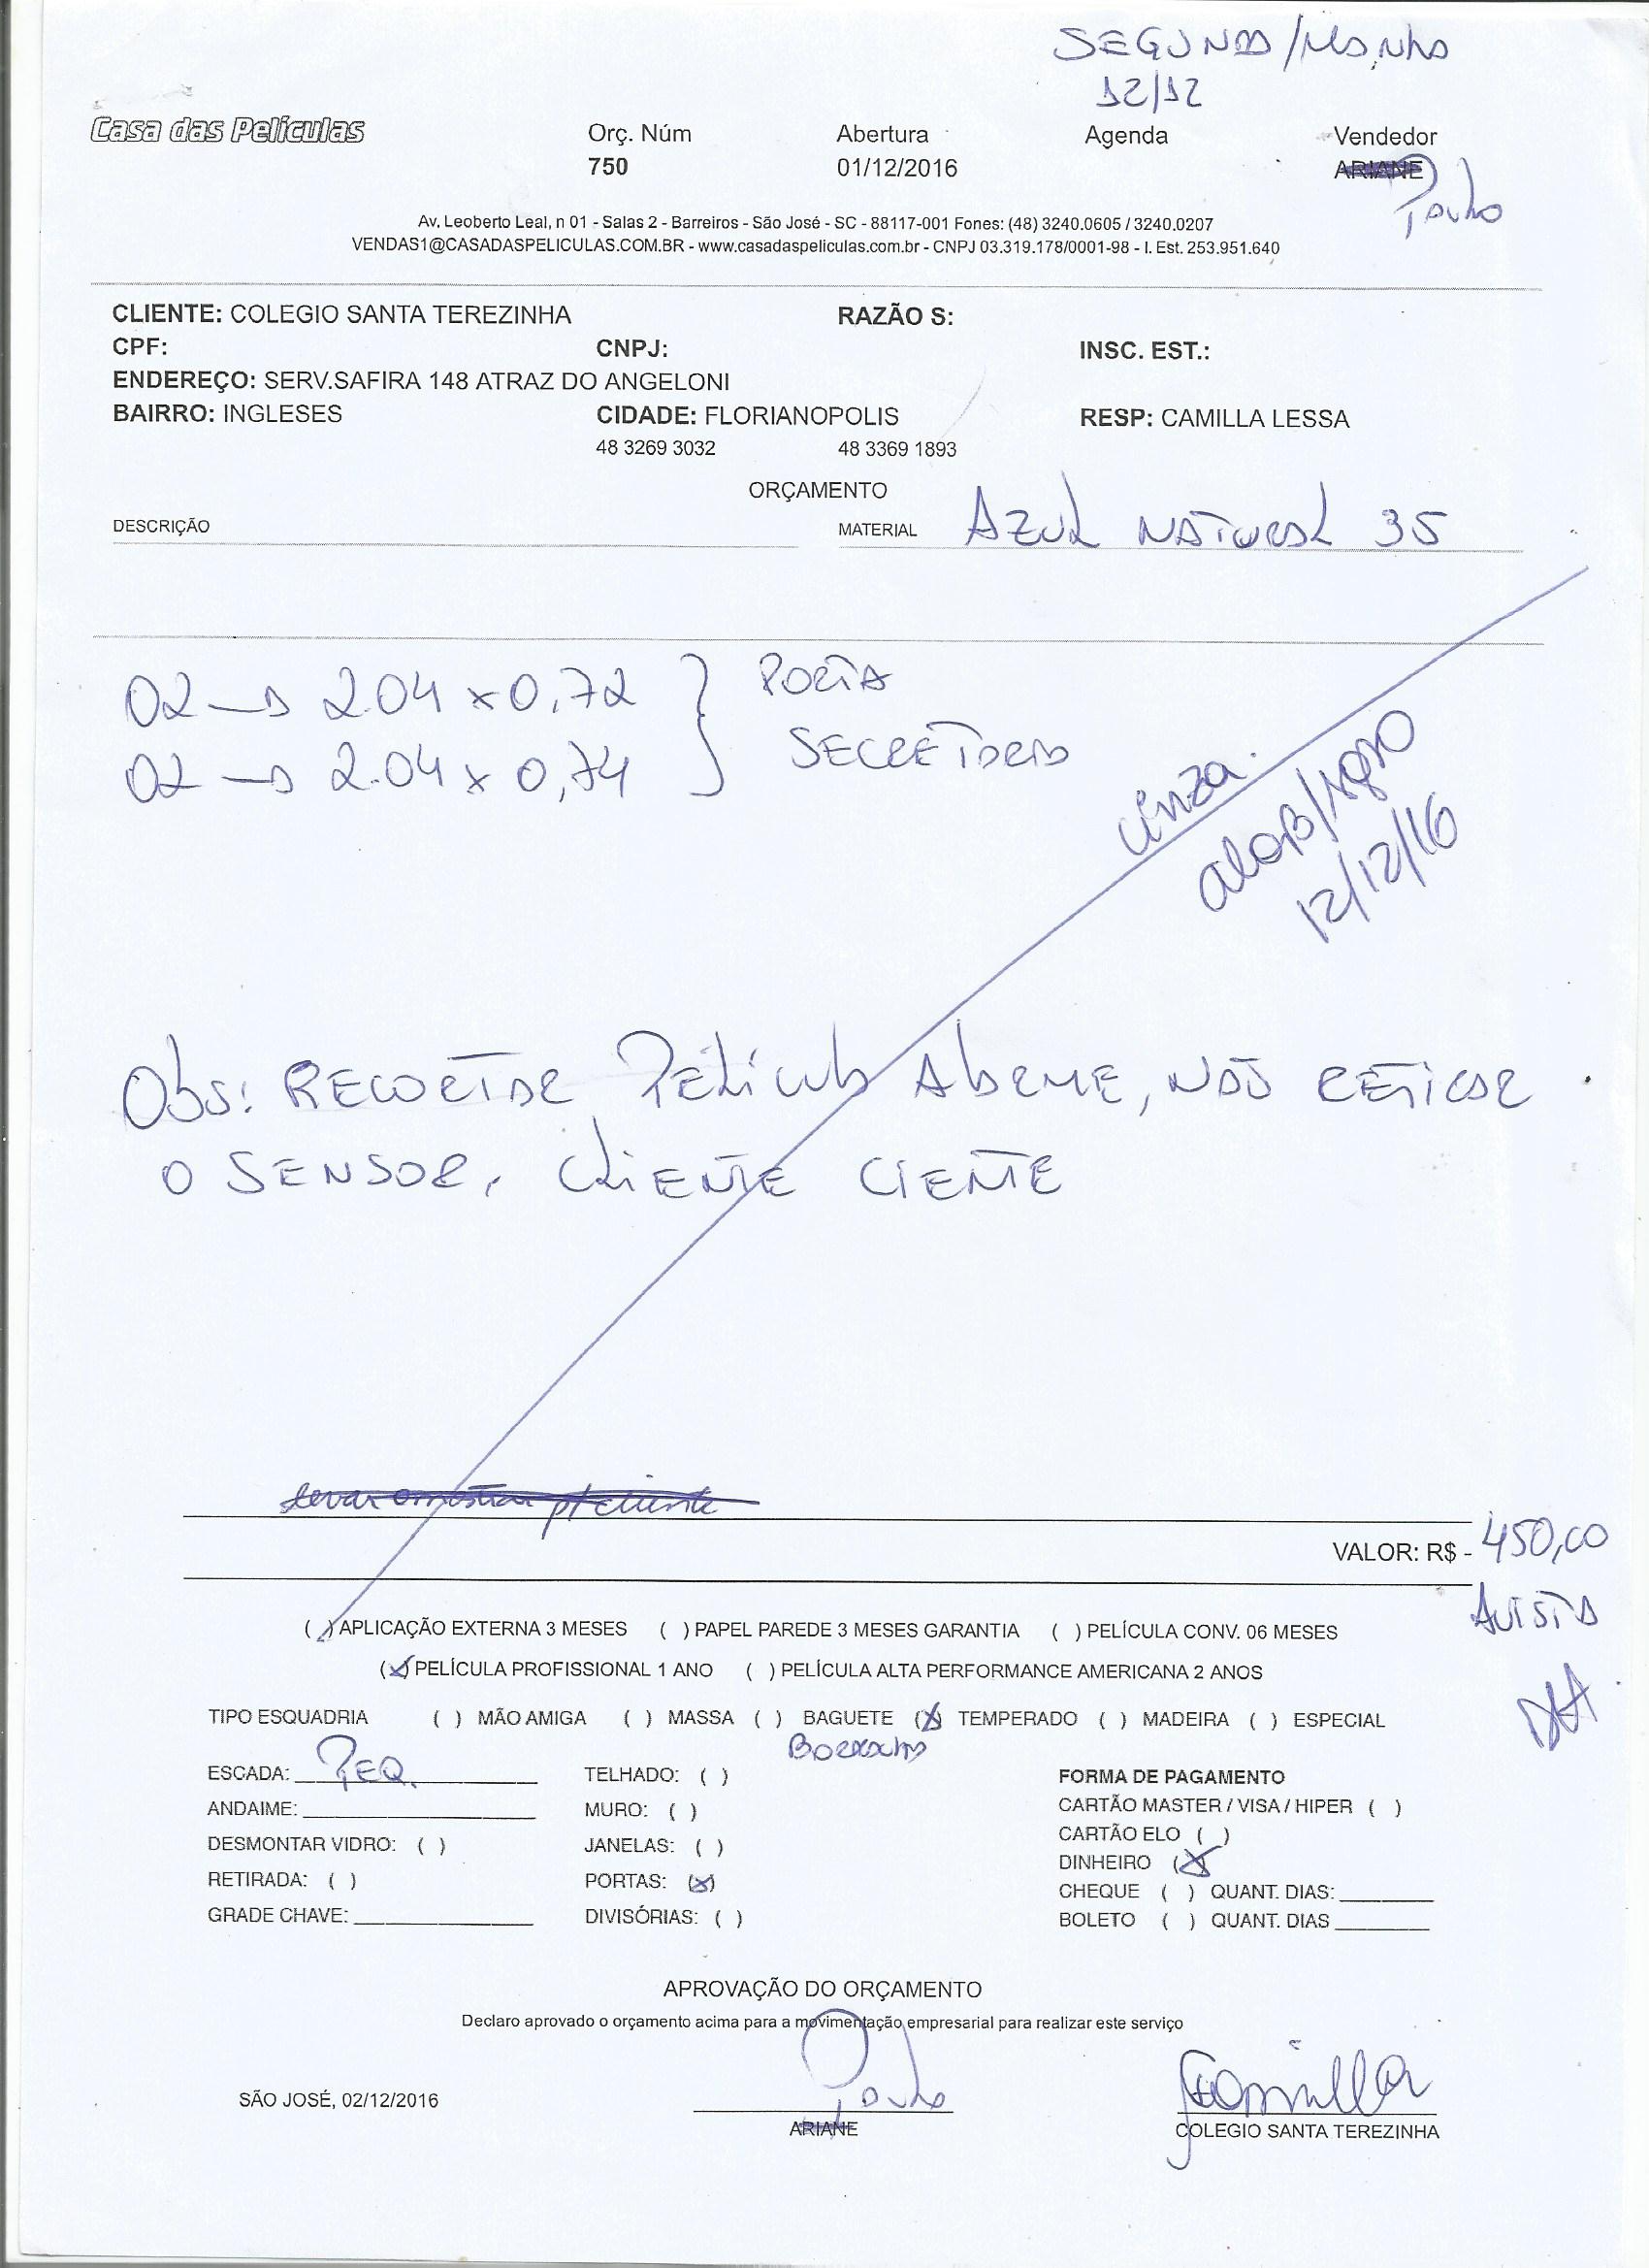 SEGUNDA/MANHÃ
12/12
Casa das Películas
Orç. Núm Abertura Agenda Vendedor
750 01/12/2016 ARIANE
Paulo
Av. Leoberto Leal, n 01 - Salas 2 - Barreiros - São José - SC - 88117-001 Fones: (48) 3240.0605 / 3240.0207
VENDAS1@CASADASPELICULAS.COM.BR - www.casadaspeliculas.com.br - CNPJ 03.319.178/0001-98 - I. Est. 253.951.640
CLIENTE: COLEGIO SANTA TEREZINHA RAZÃO S:
CPF: CNPJ: INSC. EST.:
ENDEREÇO: SERV.SAFIRA 148 ATRAZ DO ANGELONI
BAIRRO: INGLESES CIDADE: FLORIANOPOLIS RESP: CAMILLA LESSA
48 3269 3032 48 3369 1893
ORÇAMENTO
DESCRIÇÃO MATERIAL AZUL NATURAL 35
02 → 2.04 x 0,72 } PORTA
02 → 2.04 x 0,74 SECRETARIA
cinza
12/12/16
Obs: RECORTAR PELÍCULA ALARME, NÃO RETIRAR
O SENSOR, CLIENTE CIENTE
levar amostra p/ cliente
VALOR: R$ - 450,00
AVISTA
( ) APLICAÇÃO EXTERNA 3 MESES ( ) PAPEL PAREDE 3 MESES GARANTIA ( ) PELÍCULA CONV. 06 MESES
(X) PELÍCULA PROFISSIONAL 1 ANO ( ) PELÍCULA ALTA PERFORMANCE AMERICANA 2 ANOS
TIPO ESQUADRIA ( ) MÃO AMIGA ( ) MASSA ( ) BAGUETE (X) TEMPERADO ( ) MADEIRA ( ) ESPECIAL
BORRACHA
ESCADA: PEQ. TELHADO: ( ) FORMA DE PAGAMENTO
ANDAIME: MURO: ( ) CARTÃO MASTER / VISA / HIPER ( )
DESMONTAR VIDRO: ( ) JANELAS: ( ) CARTÃO ELO ( )
RETIRADA: ( ) PORTAS: (X) DINHEIRO (X)
GRADE CHAVE: DIVISÓRIAS: ( ) CHEQUE ( ) QUANT. DIAS:
BOLETO ( ) QUANT. DIAS
APROVAÇÃO DO ORÇAMENTO
Declaro aprovado o orçamento acima para a movimentação empresarial para realizar este serviço
SÃO JOSÉ, 02/12/2016 Paulo Camilla
ARIANE COLEGIO SANTA TEREZINHA